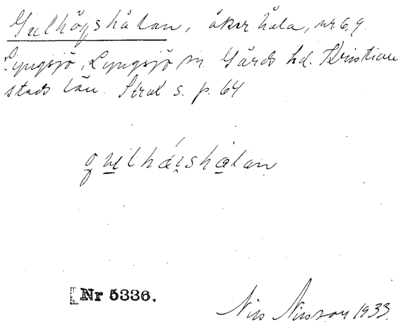 Gulhögshålan, åkerhåla, nr 6, 9.
Lyngsjö, Lyngsjö sn. Gärds hd. Kristian
stads län. Stral s. p. 64
Nr 5336.
Nils Nilsson 1933.